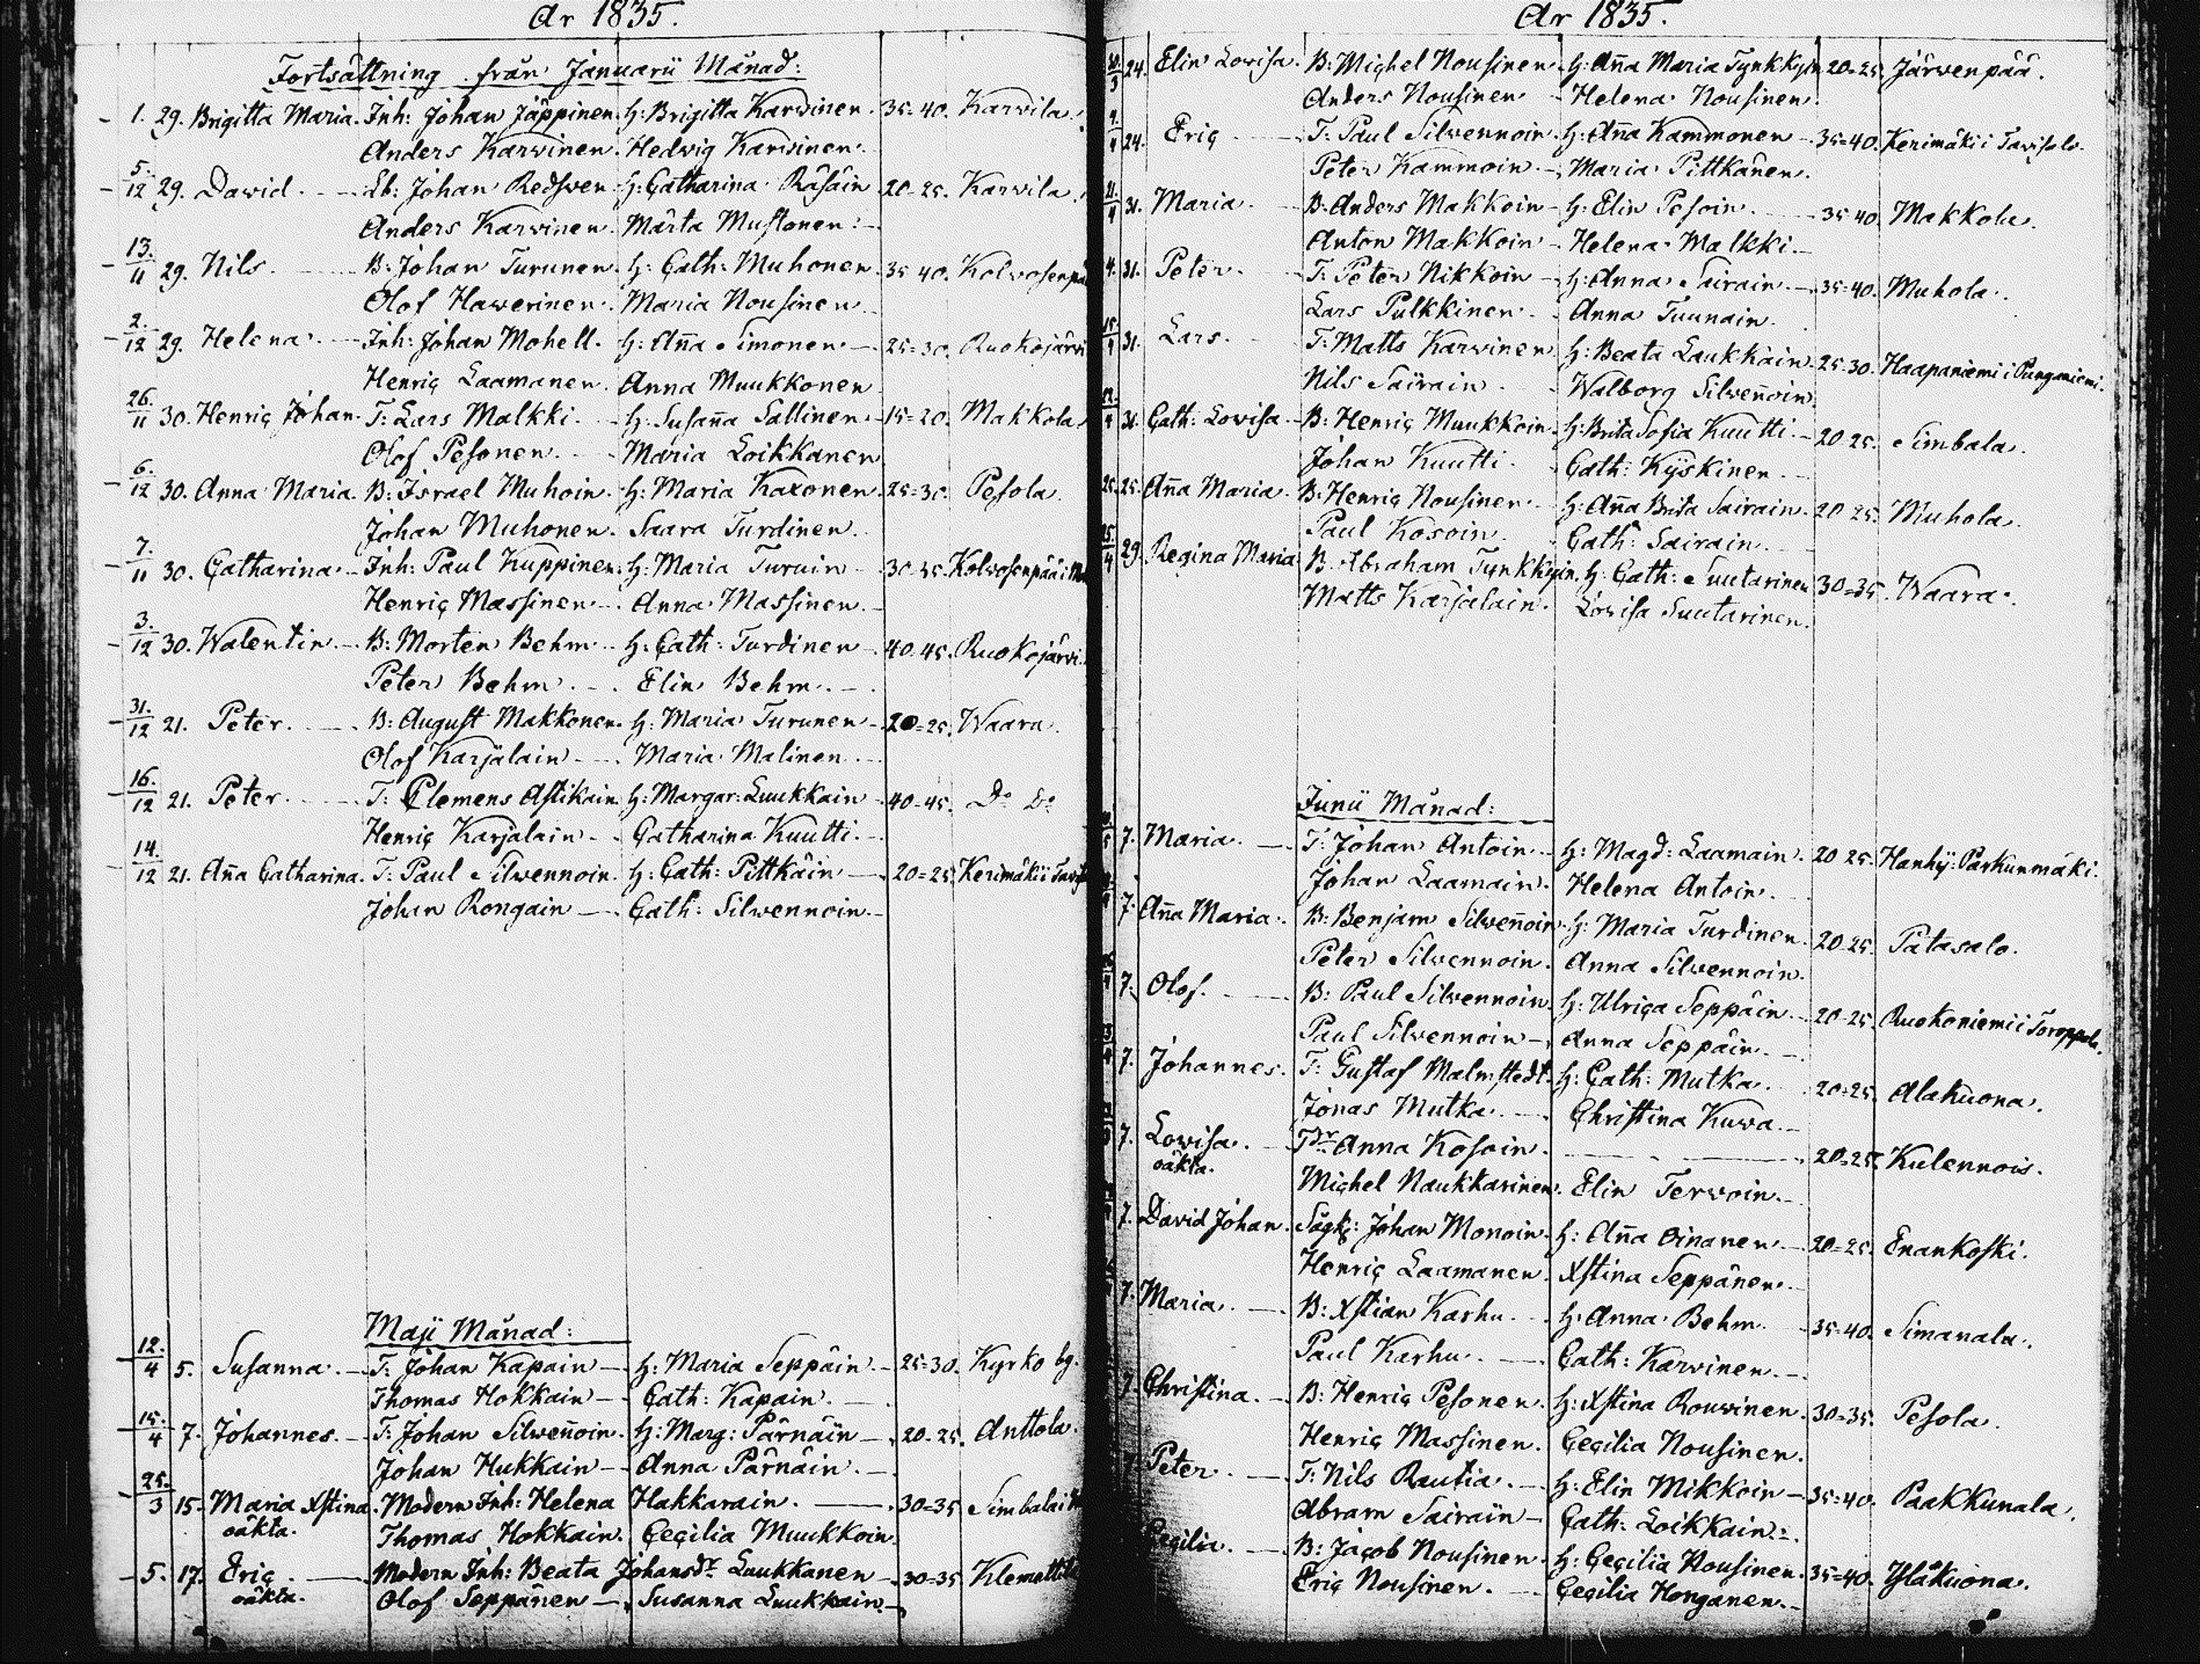 År 1835.
Fortsättning från Januarii Månad:
1. 29. Brigitta Maria. Inh: Johan Jäppinen. H: Brigitta Karvinen. 35=40. Karvila.
Anders Karvinen. Hedvig Karvinen.
5./12 29. David. Lb: Johan Redsven H: Catharina Räsäin 20=25. Karvila.
Anders Karvinen. Märta Mustonen.
13./11 29. Nils. B: Johan Turunen. H: Cath: Muhonen. 35 40.
Olof Hawerinen. Maria Nousinen.
2./12 29. Helena. Inh: Johan Mohell. H: Aña Simonen. 25=30. Ruokojärvi
Henric Laamanen. Anna Muukkonen
26./11 30. Henric Johan. T: Lars Malkki. H: Susaña Sallinen 15=20. Makkola.
Olof Pesonen. Maria Loikkanen
6./12 30. Anna Maria. B: Israel Muhoin. H: Maria Kaxonen. 25=30. Pesola.
Johan Muhonen. Saara Turdinen.
7./11 30. Catharina. Inh: Paul Kuppinen. H: Maria Turuin 30=35.
Henric Massinen. Anna Massinen.
3./12 30. Walentin. B: Morten Behm. H: Cath: Turdinen 40.45. Ruokojärvi.
Peter Behm. Elin Behm.
31./12 21. Peter. B: August Makkonen. H: Maria Turunen 20=25. Waara.
Olof Karjalain. Maria Malinen.
16./12 21. Peter. T: Clemens Astikain H: Margar: Luukkain 40=45. Do Do
Henric Karjalain. Catharina Kuutti.
14./12 21. Aña Catharina. T: Paul Silvennoin. H: Cath: Pittkäin 20=25. Kerimäki i
Johan Rongain. Cath: Silvennoin.
Maji Månad:
12./4 5. Susanna. T: Johan Kapain H: Maria Seppäin. 25=30. Kyrko by.
Thomas Hokkain Cath: Kapain.
15./4 7. Johannes. T: Johan Silveñoin. H: Marg: Pärnäin 20.25. Anttola.
Johan Hukkain Anna Pärnäin.
25./3 15. Maria Xstina. Modern Inh: Helena Hakkarain. 30=35 Simbala i
oäkta. Thomas Hokkain. Cecilia Muukkoin.
5. 17. Eric. Modern Inh: Beata Johansdr Luukkanen 30=35
oäkta. Olof Seppänen Susanna Luukkain.
År 1835.
24. Elin Lovisa. B: Michel Nousinen H: Aña Maria Tynkkyin 20=25. Järvenpää.
Anders Nousinen Helena Nousinen.
24. Eric T: Paul Silvennoin. H: Aña Kammonen 35=40. Kerimäki i Tavisalo.
Peter Kammoin. Maria Pittkänen.
31. Maria. B: Anders Makkoin H: Elin Pesoin. 35 40. Makkola.
Anton Makkoin Helena Malkki.
4. 31. Peter. T: Peter Nikkoin H: Anna Sairain. 35=40. Muhola.
Lars Pulkkinen. Anna Tuunain.
31. Lars. T: Matts Karvinen H: Beata Laukkain. 25=30. Haapaniemi i Punganiemi.
Nils Sairain Walborg Silveñoin.
31. Cath: Lovisa. B: Henric Muukkoin. H: Brita Sofia Kuutti. 20 25. Simbala.
Johan Kuutti. Cath: Kyskinen.
25. Aña Maria. B: Henric Nousinen. H: Aña Brita Sairain. 20 25. Muhola.
Paul Kosoin. Cath: Sairain.
29. Regina Maria. B: Abraham Tynkkyin. H: Cath: Suutarinen 30=35. Waara.
Matts Karjalain. Lovisa Suutarinen.
Junii Månad:
7. Maria. T: Johan Antoin. H: Magd: Laamain. 20 25. Hanhij: Parkunmäki.
Johan Laamain. Helena Antoin.
7. Aña Maria. B: Benjam Silveñoin. H: Maria Turdinen. 20 25. Patasalo.
Peter Silvennoin. Anna Silvennoin.
7. Olof. B: Paul Silvennoin. H: Ulrica Seppäin. 20=25. Ruokoniemi i Toroppala.
Paul Silvennoin Anna Seppäin.
7. Johannes. T: Gustaf Malmstedt. H: Cath: Mutka. 20=25. Alakuona.
Jonas Mutka. Christina Kuva.
7. Lovisa. Tdr Anna Kosoin. 20=25. Kulennois.
oäkta. Michel Naukkarinen. Elin Tervoin.
7. David Johan. Sågk: Johan Monoin. H: Aña Oinanen 20=25. Enankoski.
Henric Laamanen. Xstina Seppänen.
7. Maria. B: Xstian Karhu. H: Anna Behm. 35=40. Simanala.
Paul Karhu. Cath: Karvinen.
7. Christina. B: Henric Pesonen. H: Xstina Rouvinen. 30=35. Pesola.
Henric Massinen. Cecilia Nousinen.
Peter. T: Nils Rautia. H: Elin Mikkoin 35=40. Paakkunala.
Abram Sairain Cath: Loikkain.
Cecilia. B: Jacob Nousinen. H: Cecilia Nousinen. 35=40. Yläkuona.
Eric Nousinen. Cecilia Honganen.